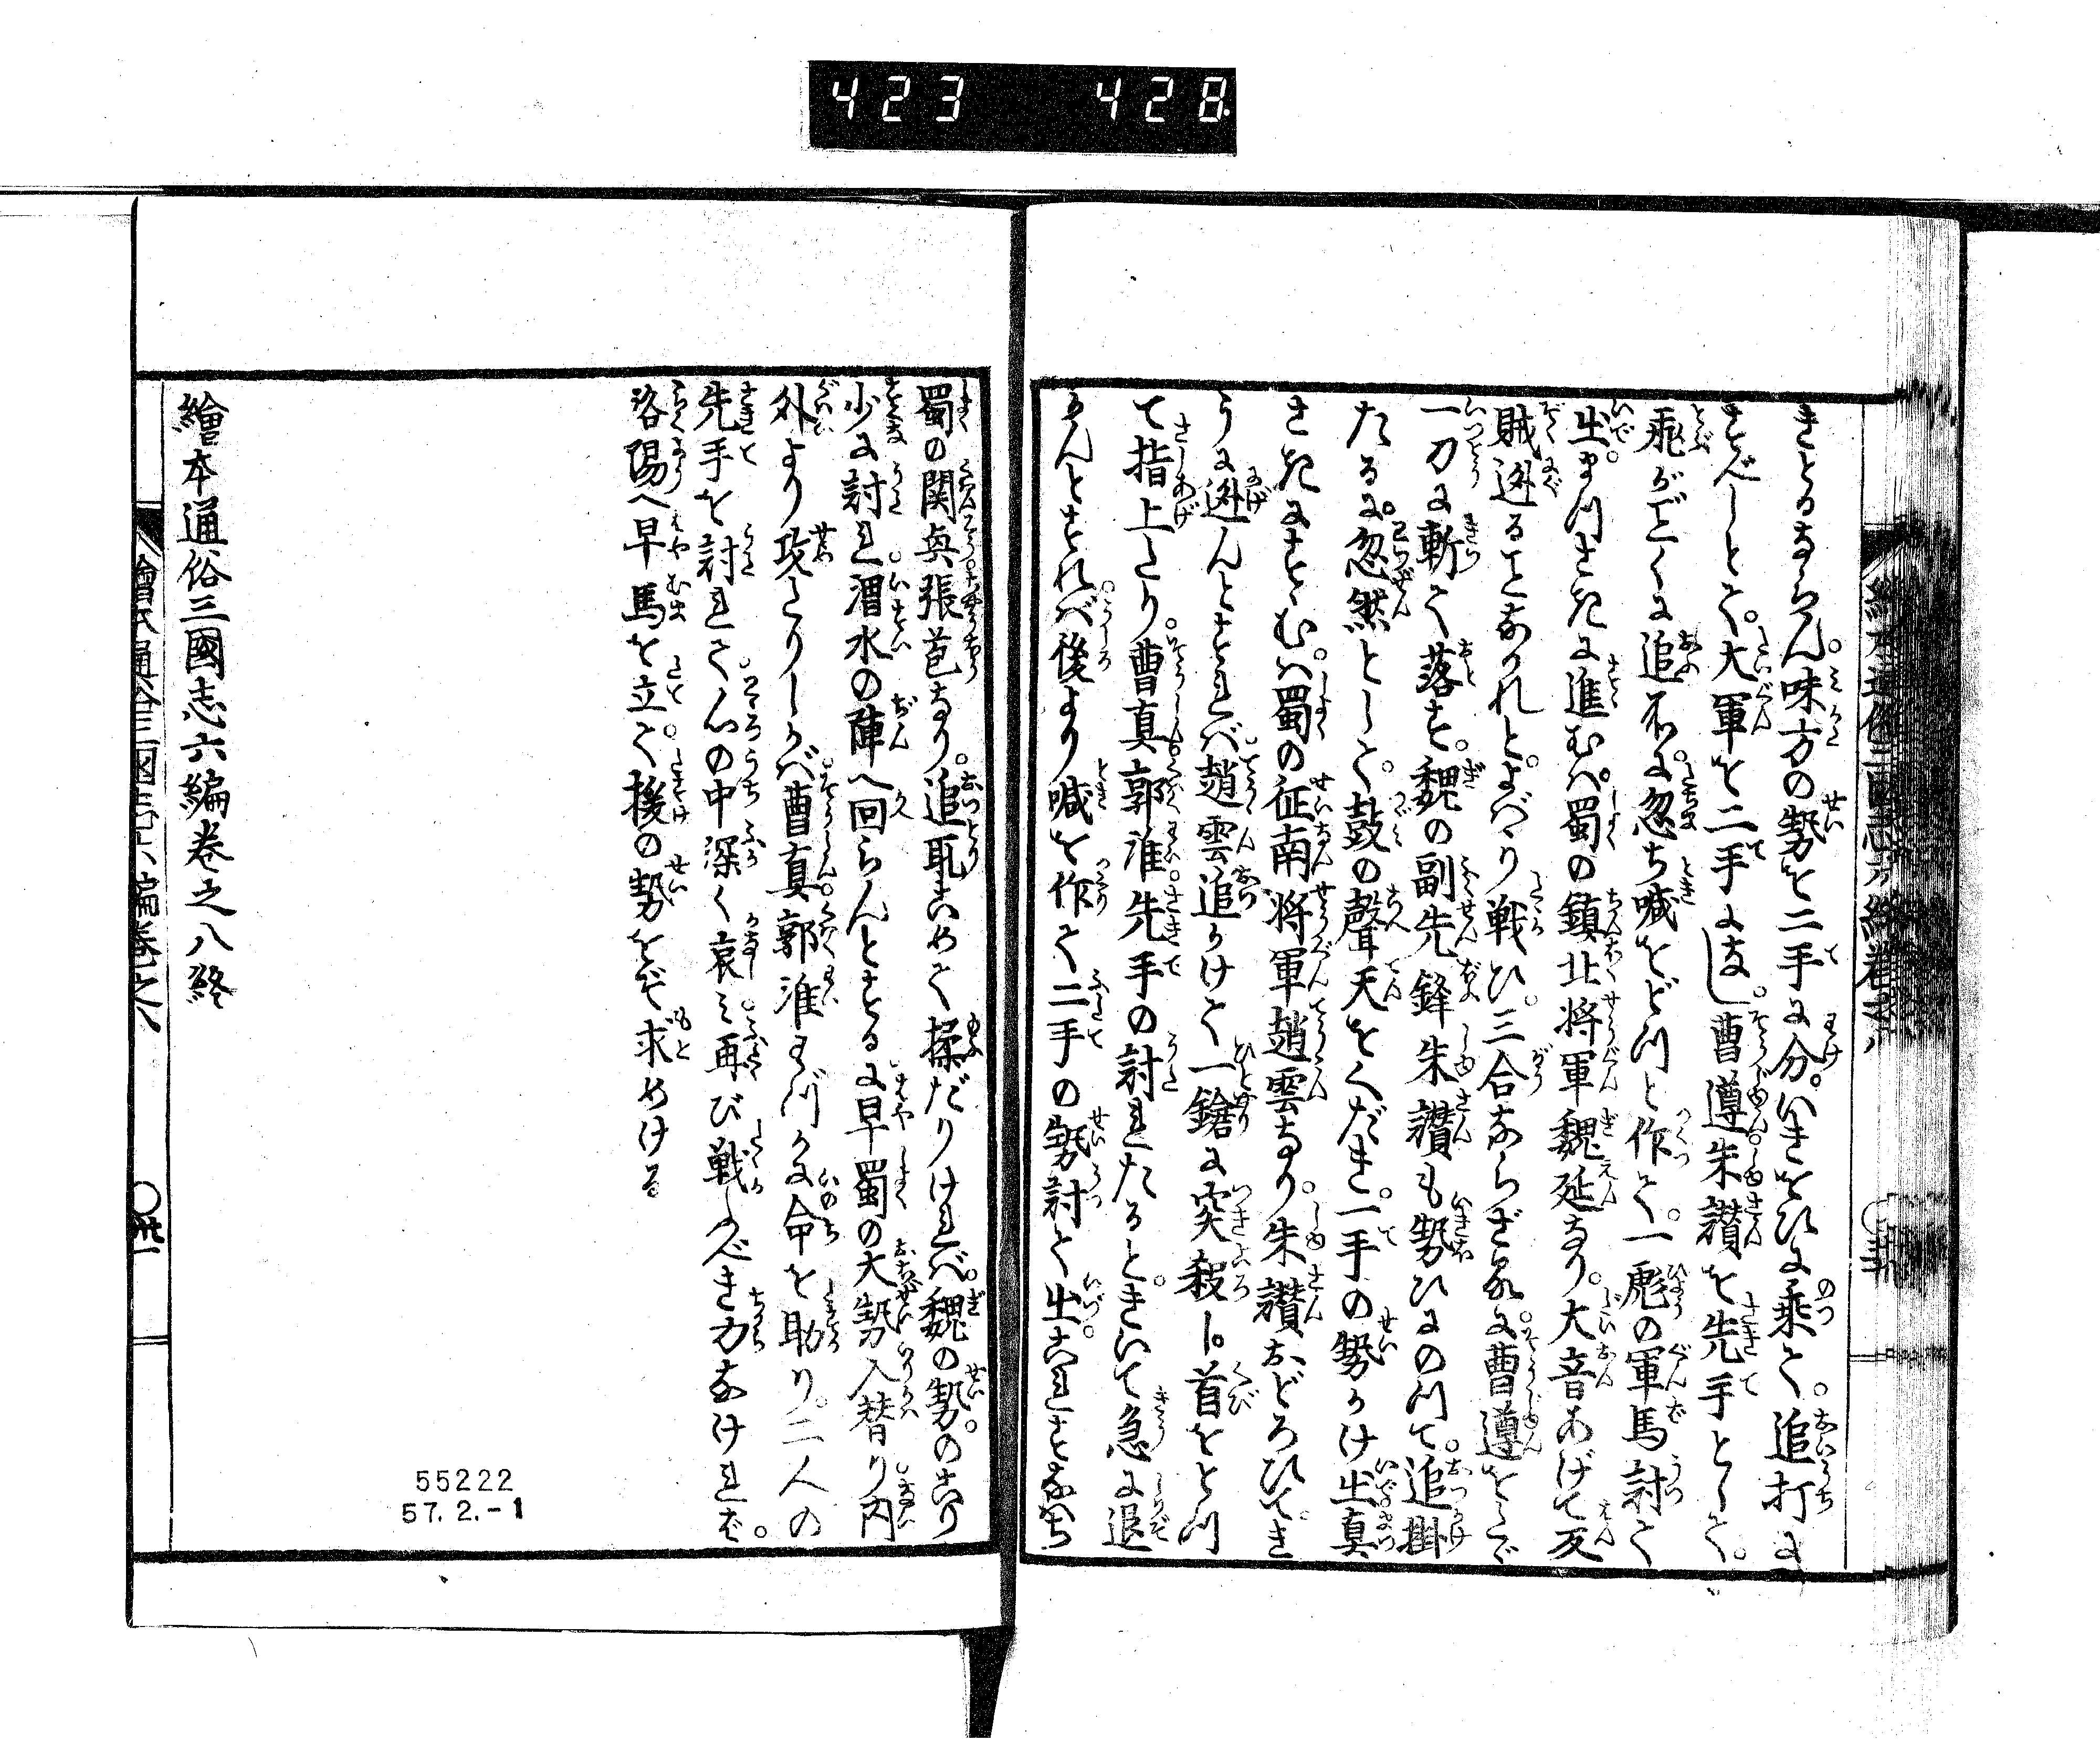 423 428
きとるならん。味方の勢を二手に分。いきをひに乗て。追打に
すべしとて。大軍を二手になし。曹遵朱讃を先手として。
飛がごとくに追ふに。忽ち喊をどつと作て。一彪の軍馬討て
出。まつさきに進むは。蜀の鎮北将軍魏延なり。大音あげて反
賊迯ることなかれと。よばゝり戦ひ。三合ならざるに。曹遵をたゞ
一刀に斬て落す。魏の副先鋒朱讃も勢ひにのつて。追掛
たるに。忽然として。鼓の聲天をくだき。一手の勢かけ出真
さきにすゝむは。蜀の征南将軍趙雲なり。朱讃おどろひてき
うに迯んとすれば。趙雲追かけて一鎗に突殺し。首をとつ
て指上たり。曹真郭淮先手の討れたるときいて急に退
かんとすれば。後より喊を作て二手の勢討て出これすなはち
蜀の関興張苞なり。追取こめて揉だりければ。魏の勢。のこり
少に討れ。渭水の陣へ回らんとするに早蜀の大勢入替り内
外より攻たりしかば。曹真郭淮わづかに命を助り。二人の
先手を討れて。心の中深く哀み。再び戦ふべき力なければ。
洛陽へ早馬を立て。援の勢をぞ求めける
繪本通俗三國志六編巻之八終
繪本通俗三國志六編巻之八
卅一
55222
57.2.-1